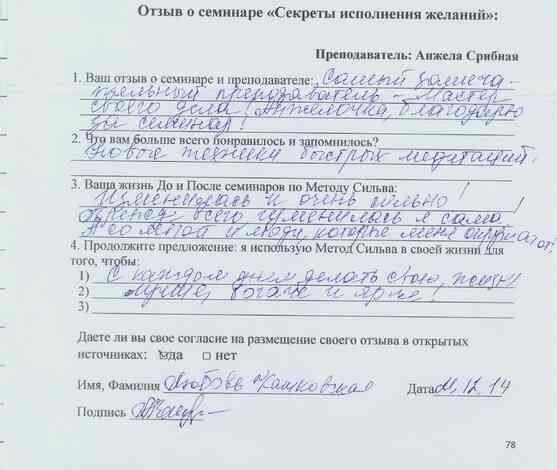 Отзыв о семинаре «Секреты исполнения желаний»:
Преподаватель: Анжела Срибная
1. Ваш отзыв о семинаре и преподавателе: Самый замеча-
тельный преподаватель – Мастер
своего дела! Анжелочка, благодарю
за семинар!
2. Что вам больше всего понравилось и запомнилось?
Новые техники быстрой медитаций.
3. Ваша жизнь До и После семинаров по Методу Сильва:
Изменилась и очень сильно!
Прежде всего изменилась я сама!
А со мной и люди, которые меня окружают!
4. Продолжите предложение: я использую Метод Сильва в своей жизни для
того, чтобы:
1) С каждым днем делать свою жизнь
2) лучше, богаче и ярче!
3)
Даете ли вы свое согласие на размещение своего отзыва в открытых
источниках: да нет
Имя, Фамилия Любовь Дата 11.12.14
Подпись
78